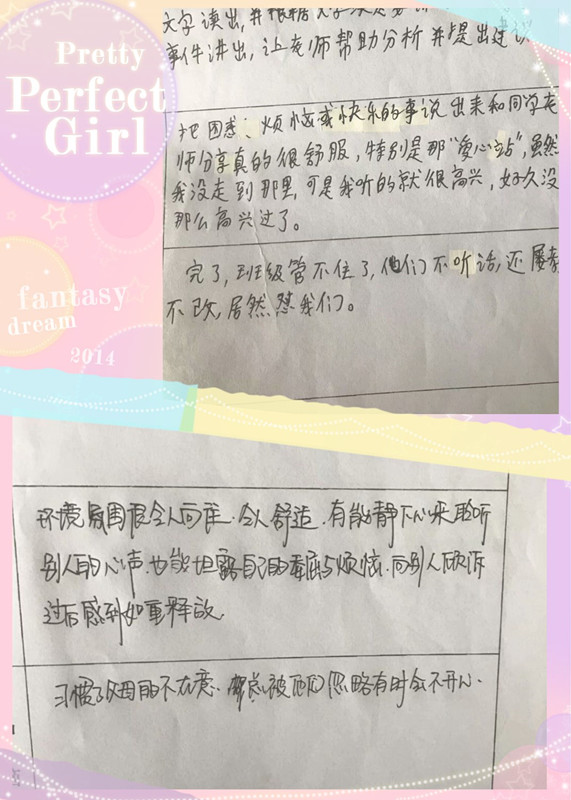 Pretty
Perfect
Girl
fantasy
dream
2014
文字读出,并根据
事件讲出,让老师帮助分析并提出建议
把困惑、烦恼或快乐的事说出来和同学老
师分享真的很舒服,特别是那"爱心站",虽然
我没走到那里,可是我听的就很高兴,好久没
那么高兴过了。
完了,班级管不住了,他们不听话,还屡教
不改,居然怼我们。
环境氛围很令人向往.令人舒适.有能静下心来聆听
别人的心声.也能坦露自己的 与烦恼.向别人倾诉
过后感到如重释放.
习惯了父母的不在意. 总被他们忽略有时会不开心.